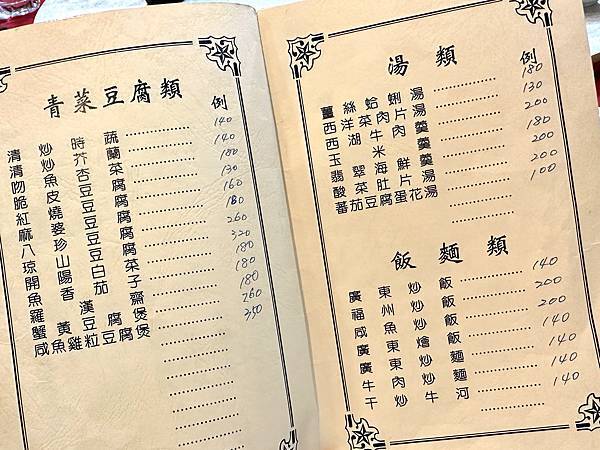 青菜豆腐類 例
清炒時蔬 140
清炒芥蘭 140
吻魚杏菜 180
脆皮豆腐 130
紅燒豆腐 160
麻婆豆腐 180
八珍豆腐 260
琼山豆腐 320
開陽白菜 180
魚香茄子 180
羅漢齋 180
蟹黃豆腐煲 260
咸魚雞粒豆腐煲 350
湯類 例
薑絲蛤蜊湯 180
西洋菜肉片湯 130
西湖牛肉羹 200
玉米羹 180
翡翠海鮮羹 200
酸菜肚片湯 200
蕃茄豆腐蛋花湯 100
飯麵類
廣東炒飯 140
福州炒飯 200
咸魚炒飯 200
廣東燴飯 140
廣東炒麵 140
牛肉炒麵 140
干炒牛河 140